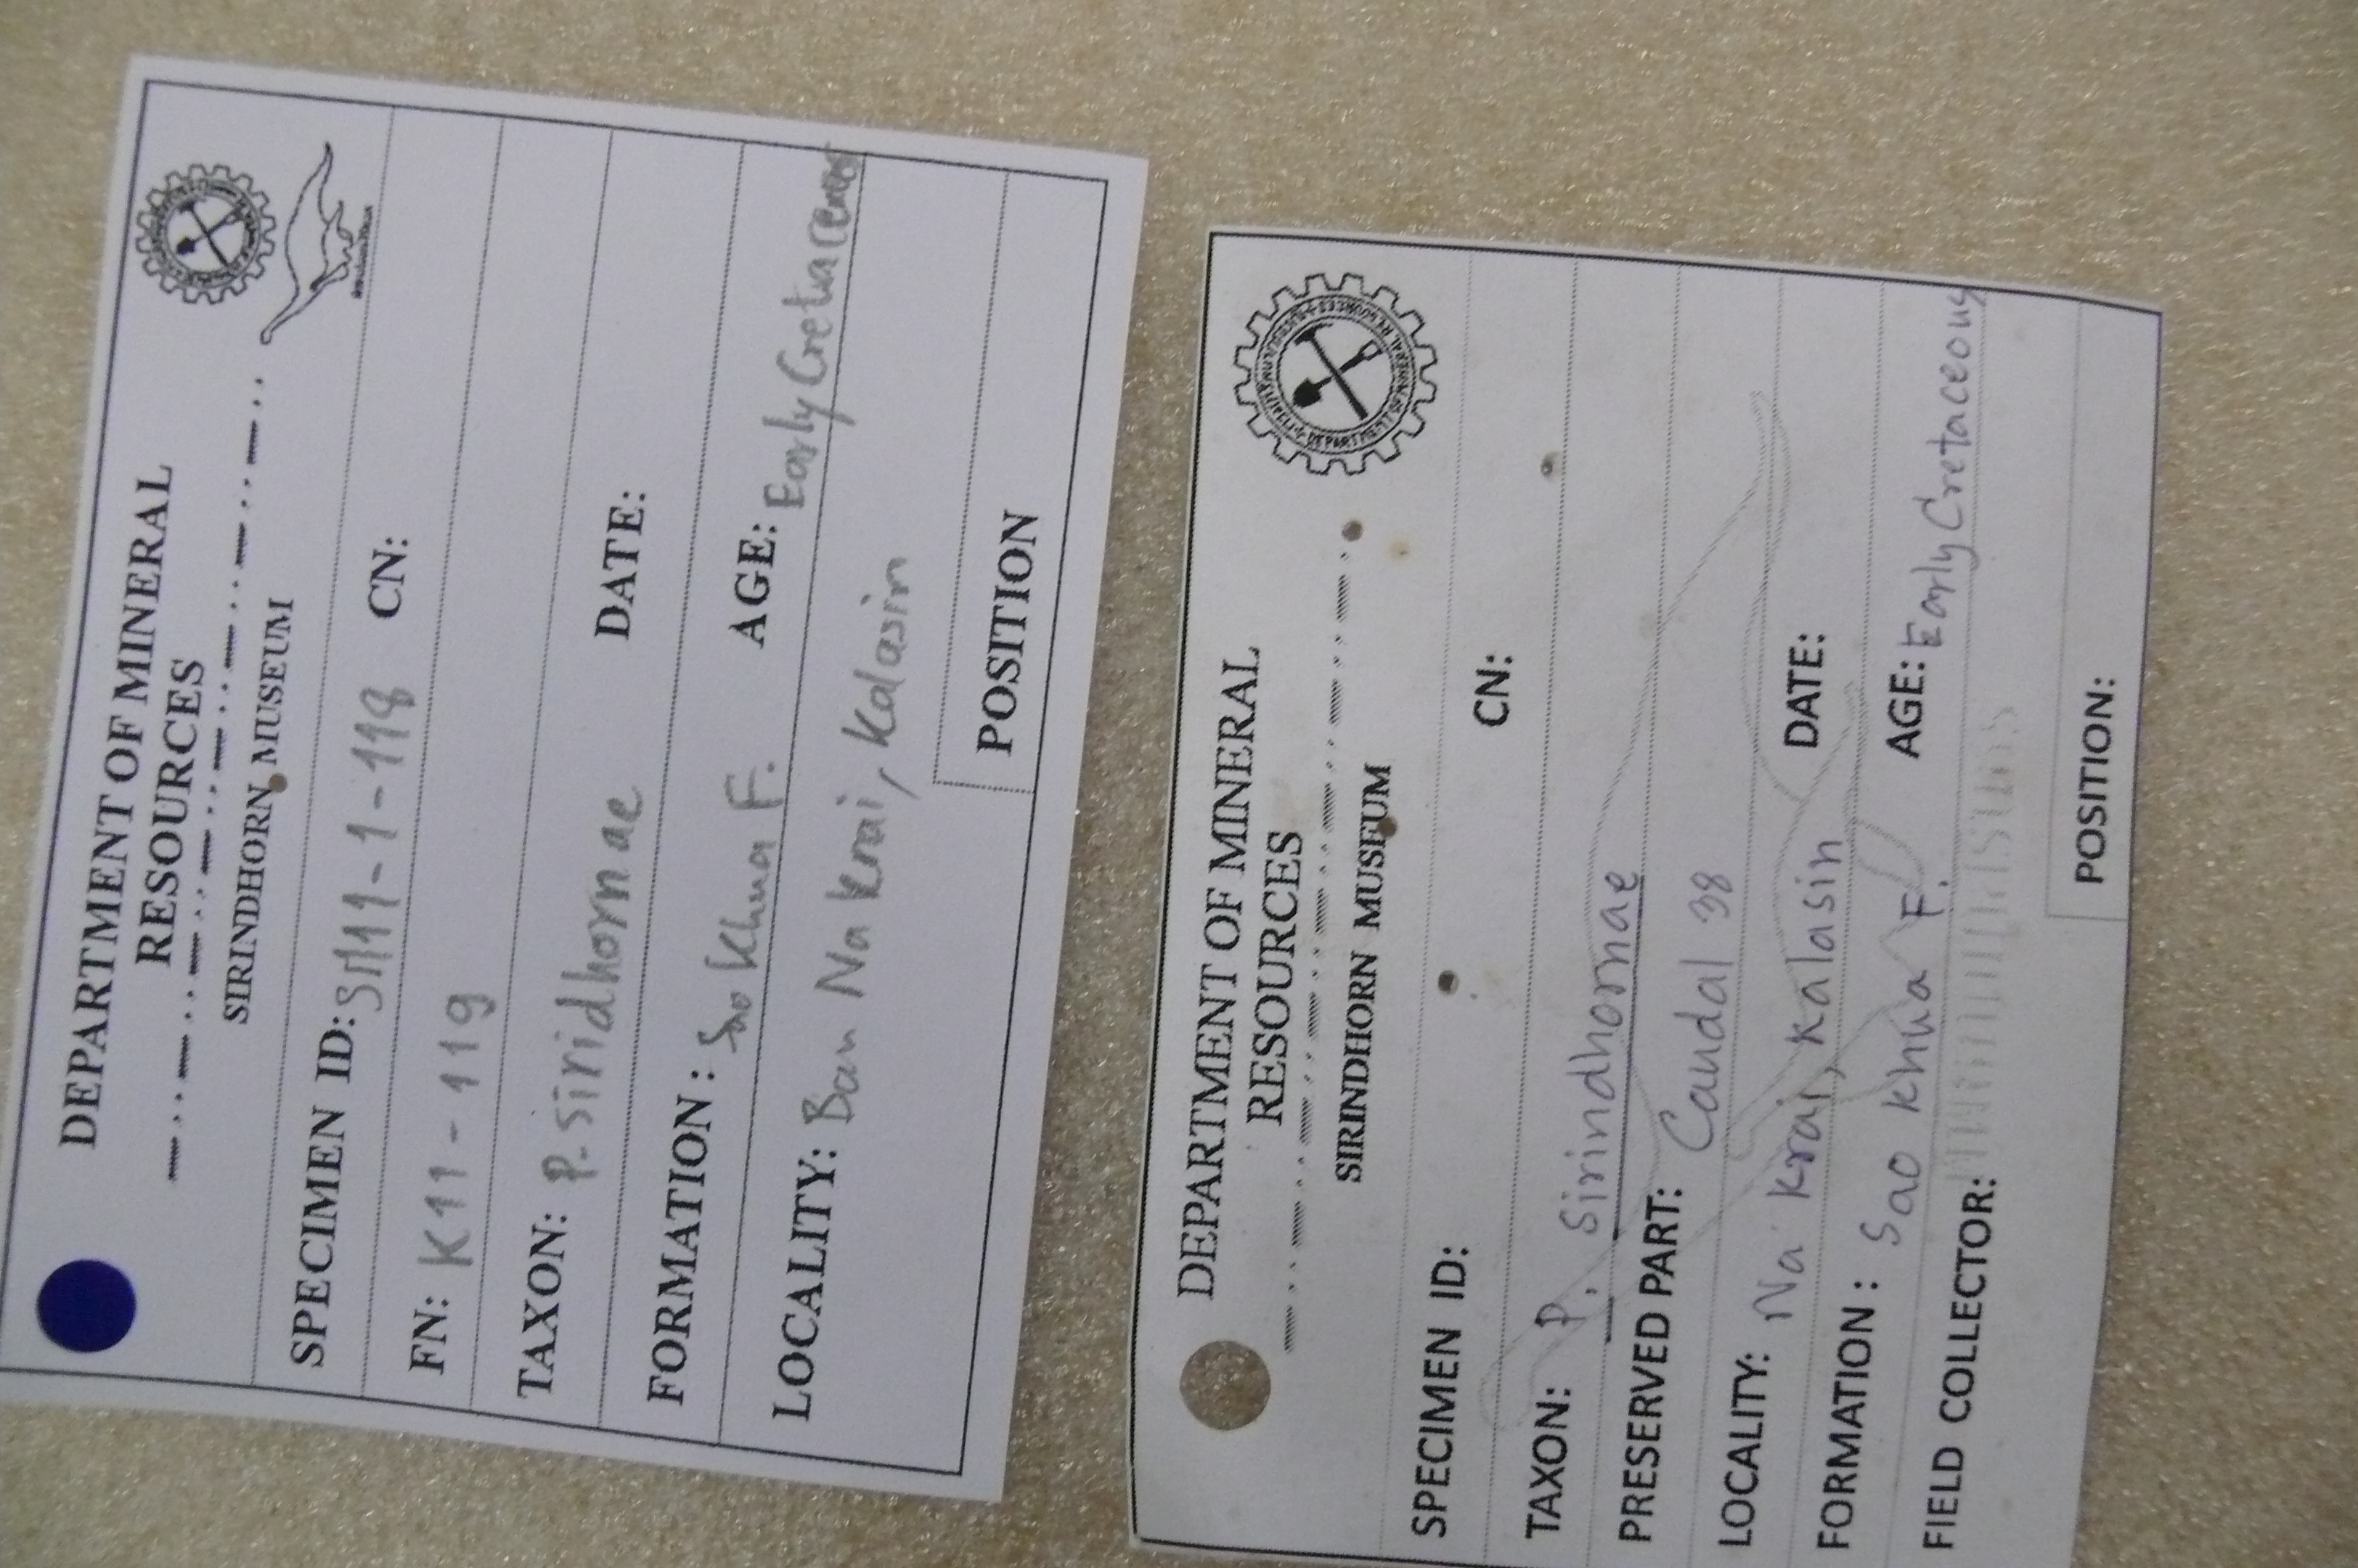 DEPARTMENT OF MINERAL
RESOURCES
SIRINDHORN MUSEUM
SPECIMEN ID: SM11-1-118 CN:
FN: K11-119
TAXON: P. siridhornae
DATE:
FORMATION: Sao Khua F. AGE: Early Cretaceous
LOCALITY: Ban Na Krai, Kalasin
POSITION
DEPARTMENT OF MINERAL
RESOURCES
SIRINDHORN MUSEUM
SPECIMEN ID: CN:
TAXON: P. Sirindhornae
PRESERVED PART: Caudal 38
LOCALITY: Na Krai, Kalasin DATE:
FORMATION: Sao Khua F. AGE: Early Cretaceous
FIELD COLLECTOR:
POSITION: